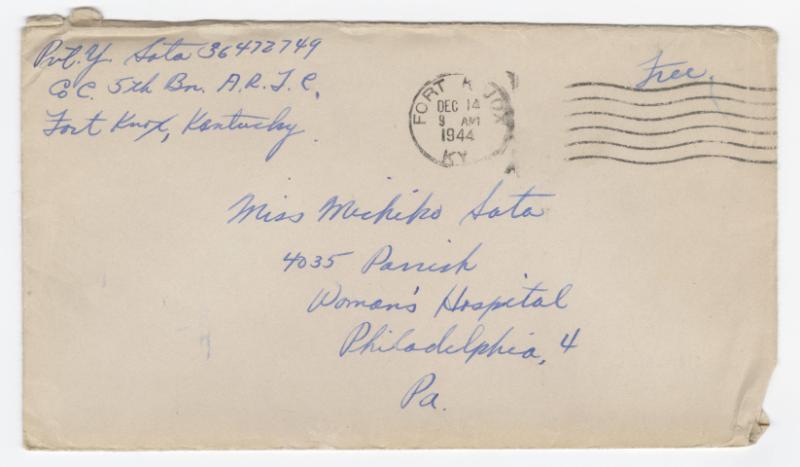 Pvt. Y. Sato 36472749
Co C. 5th Bn. A.R.T.C.
Fort Knox, Kentucky.
FORT KNOX
DEC 14
9 AM
1944
KY.
Free.
Miss Michiko Sato
4035 Parrish
Woman's Hospital
Philadelphia, 4
Pa.